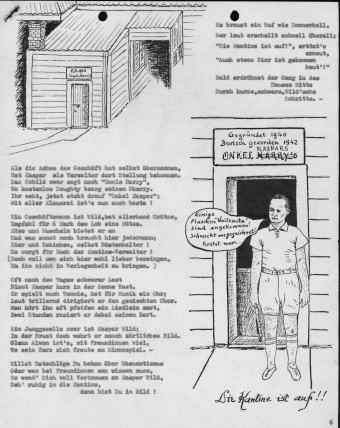 Es braust ein Ruf wie Donnerhall,
Der laut erschallt schnell überall;
"Die Kantine ist auf!", ertönt's
erneut,
"Auch etwas Bier ist gekommen
heut'!"
Bald erdröhnet der Gang in des
Hauses Mitte
Durch kurze, schwere, Wild'sche
Schritte. -
Gegründet 1940
Deutsch geworden 1942
KASPARS
ONKEL HARRY'S
Als die Ashes das Geschäft hat selbst übernommen,
Hat Kaspar als Verwalter dort Stellung bekommen.
Das Schild zwar sagt noch "Uncle Harry",
Wo kostenlos Doughty bezog seinen Sherry.
Ihr seht, jetzt steht drauf "Onkel Kaspar";
Mit aller Sauerei ist's nun auch basta !
Ein Geschäftsmann ist Wild, hat allerhand Grütze,
Empfahl für 6 Mark dem Leh eine Mütze.
Uhr und Muscheln bietet er an
Und was sonst noch braucht hier jedermann.
Bier und Schinken, selbst Büstenhalter !
So sorgt für Euch der Kantine-Verwalter !
(Doch soll man sich hier wohl lieber bezwingen,
Um ihn nicht in Verlegenheit zu bringen. )
Oft nach des Tages schwerer Last
Nimmt Kaspar kurz in der Sonne Rast.
Er spielt auch Tennis, hat für Musik ein Ohr;
Laut trillernd dirigiert er den gemischten Chor.
Man hört ihn oft pfeifen ein Liedlein zart,
Zwei Stunden rasiert er dabei seinen Bart.
Ein Junggeselle zwar ist Kaspar Wild;
In der Brust doch wahrt er manch zärtliches Bild.
Glenn Alvon ist's, mit Freundinnen viel,
Wo sein Herz sich freute am Minnespiel. -
Willst Ratschläge Du haben über Rheumatismus
Oder was bei Freundinnen man wissen muss,
So wend' Dich voll Vertrauen an Kaspar Wild,
Geh' ruhig in die Kantine,
dann bist Du im Bild !
Einige
Flaschen Weilemutz
sind angekommen!
Schmeckt ausgezeichnet!
Kostet nur
Die Kantine ist auf!!
6